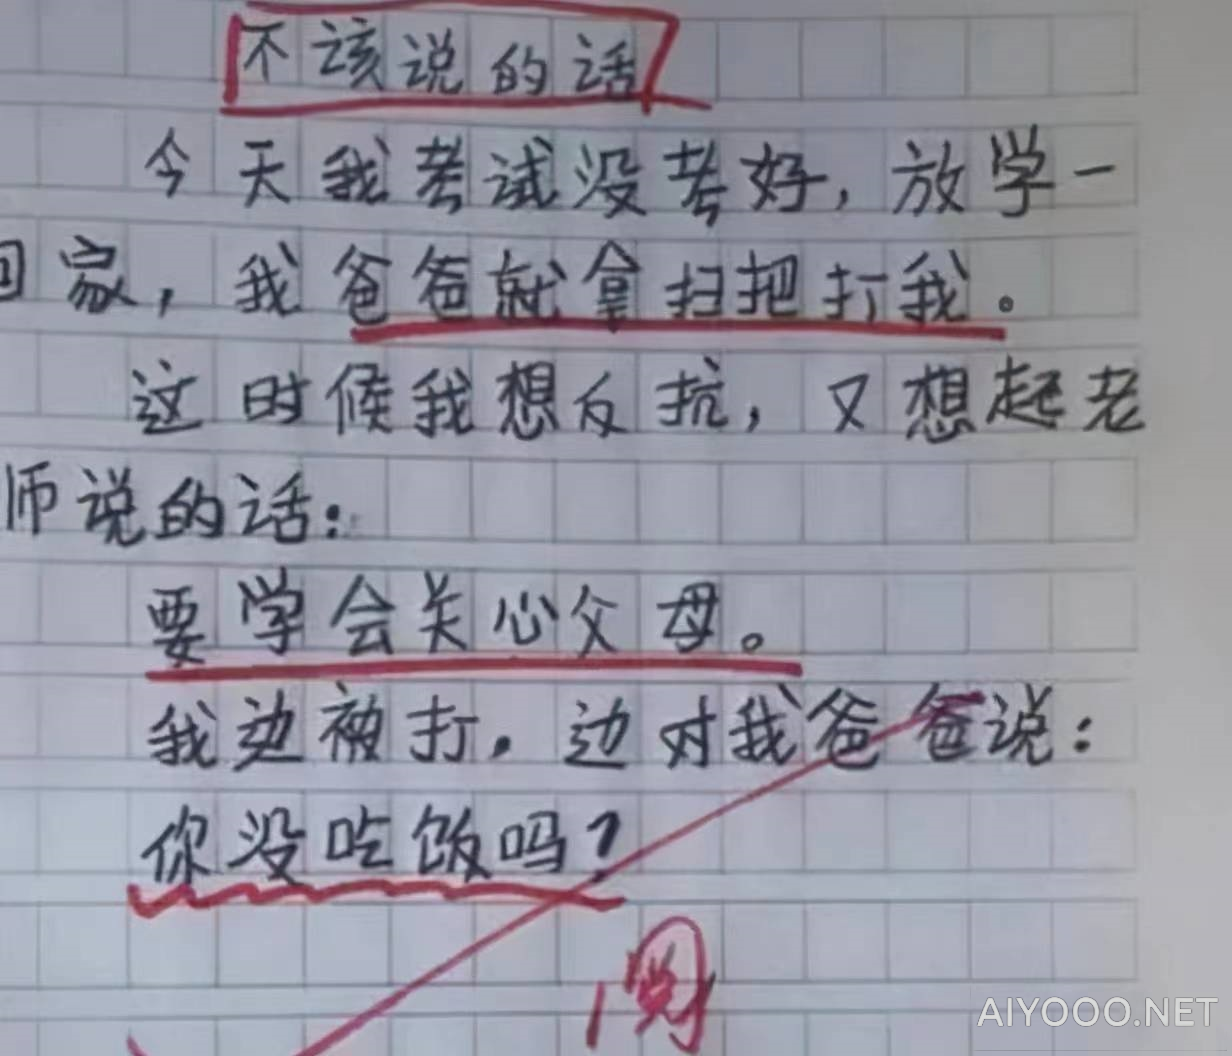 不该说的话
今天我考试没考好,放学一
回家,我爸爸就拿扫把打我。
这时候我想反抗,又想起老
师说的话:
要学会关心父母。
我边被打,边对我爸爸说:
你没吃饭吗?
阅
AIYOOO.NET